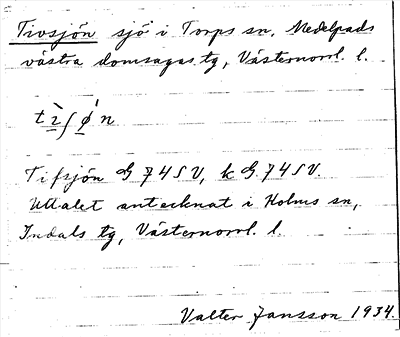 Tivsjön sjö i Torps sn, Medelpads
västra domsagas tg, Västernorrl. l.
Tifsjön G 74 SV, k G. 74 SV.
Uttalet antecknat i Holms sn,
Indals tg, Västernorrl. l.
Valter Jansson 1934.